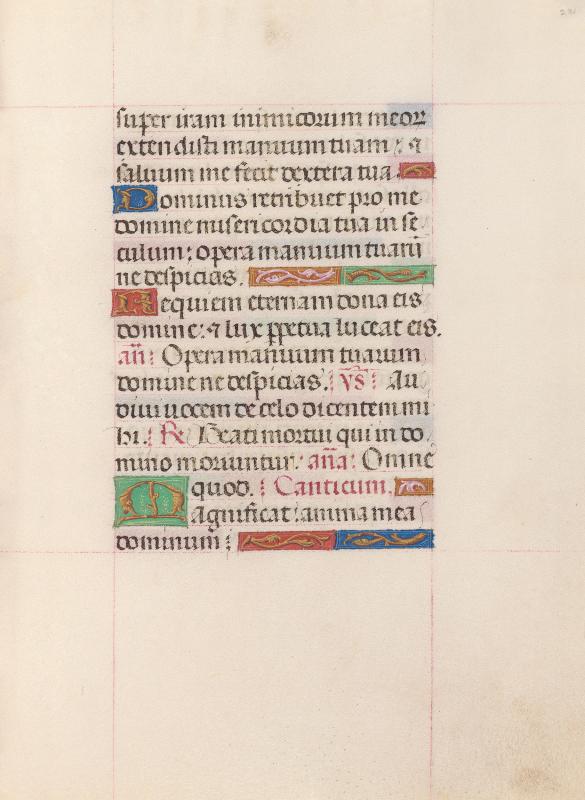 super iram inimicorum meorꝝ
extendisti manuum tuam : ⁊
saluum me fecit dextera tua.
Dominus retribuet pro me
domine misericordia tua in se
culum : opera manuum tuarū
ne despicias.
Requiem eternam dona eis
domine : ⁊ lux ꝑpetua luceat eis.
añ : Opera manuum tuarum
domine ne despicias. : vs̃ : Au
diui uocem de celo dicentem mi
hi. : ℟ Beati mortui qui in do
mino moriuntur. aña : Omne
quod. : Canticum.
Magnificat : anima mea
dominum :